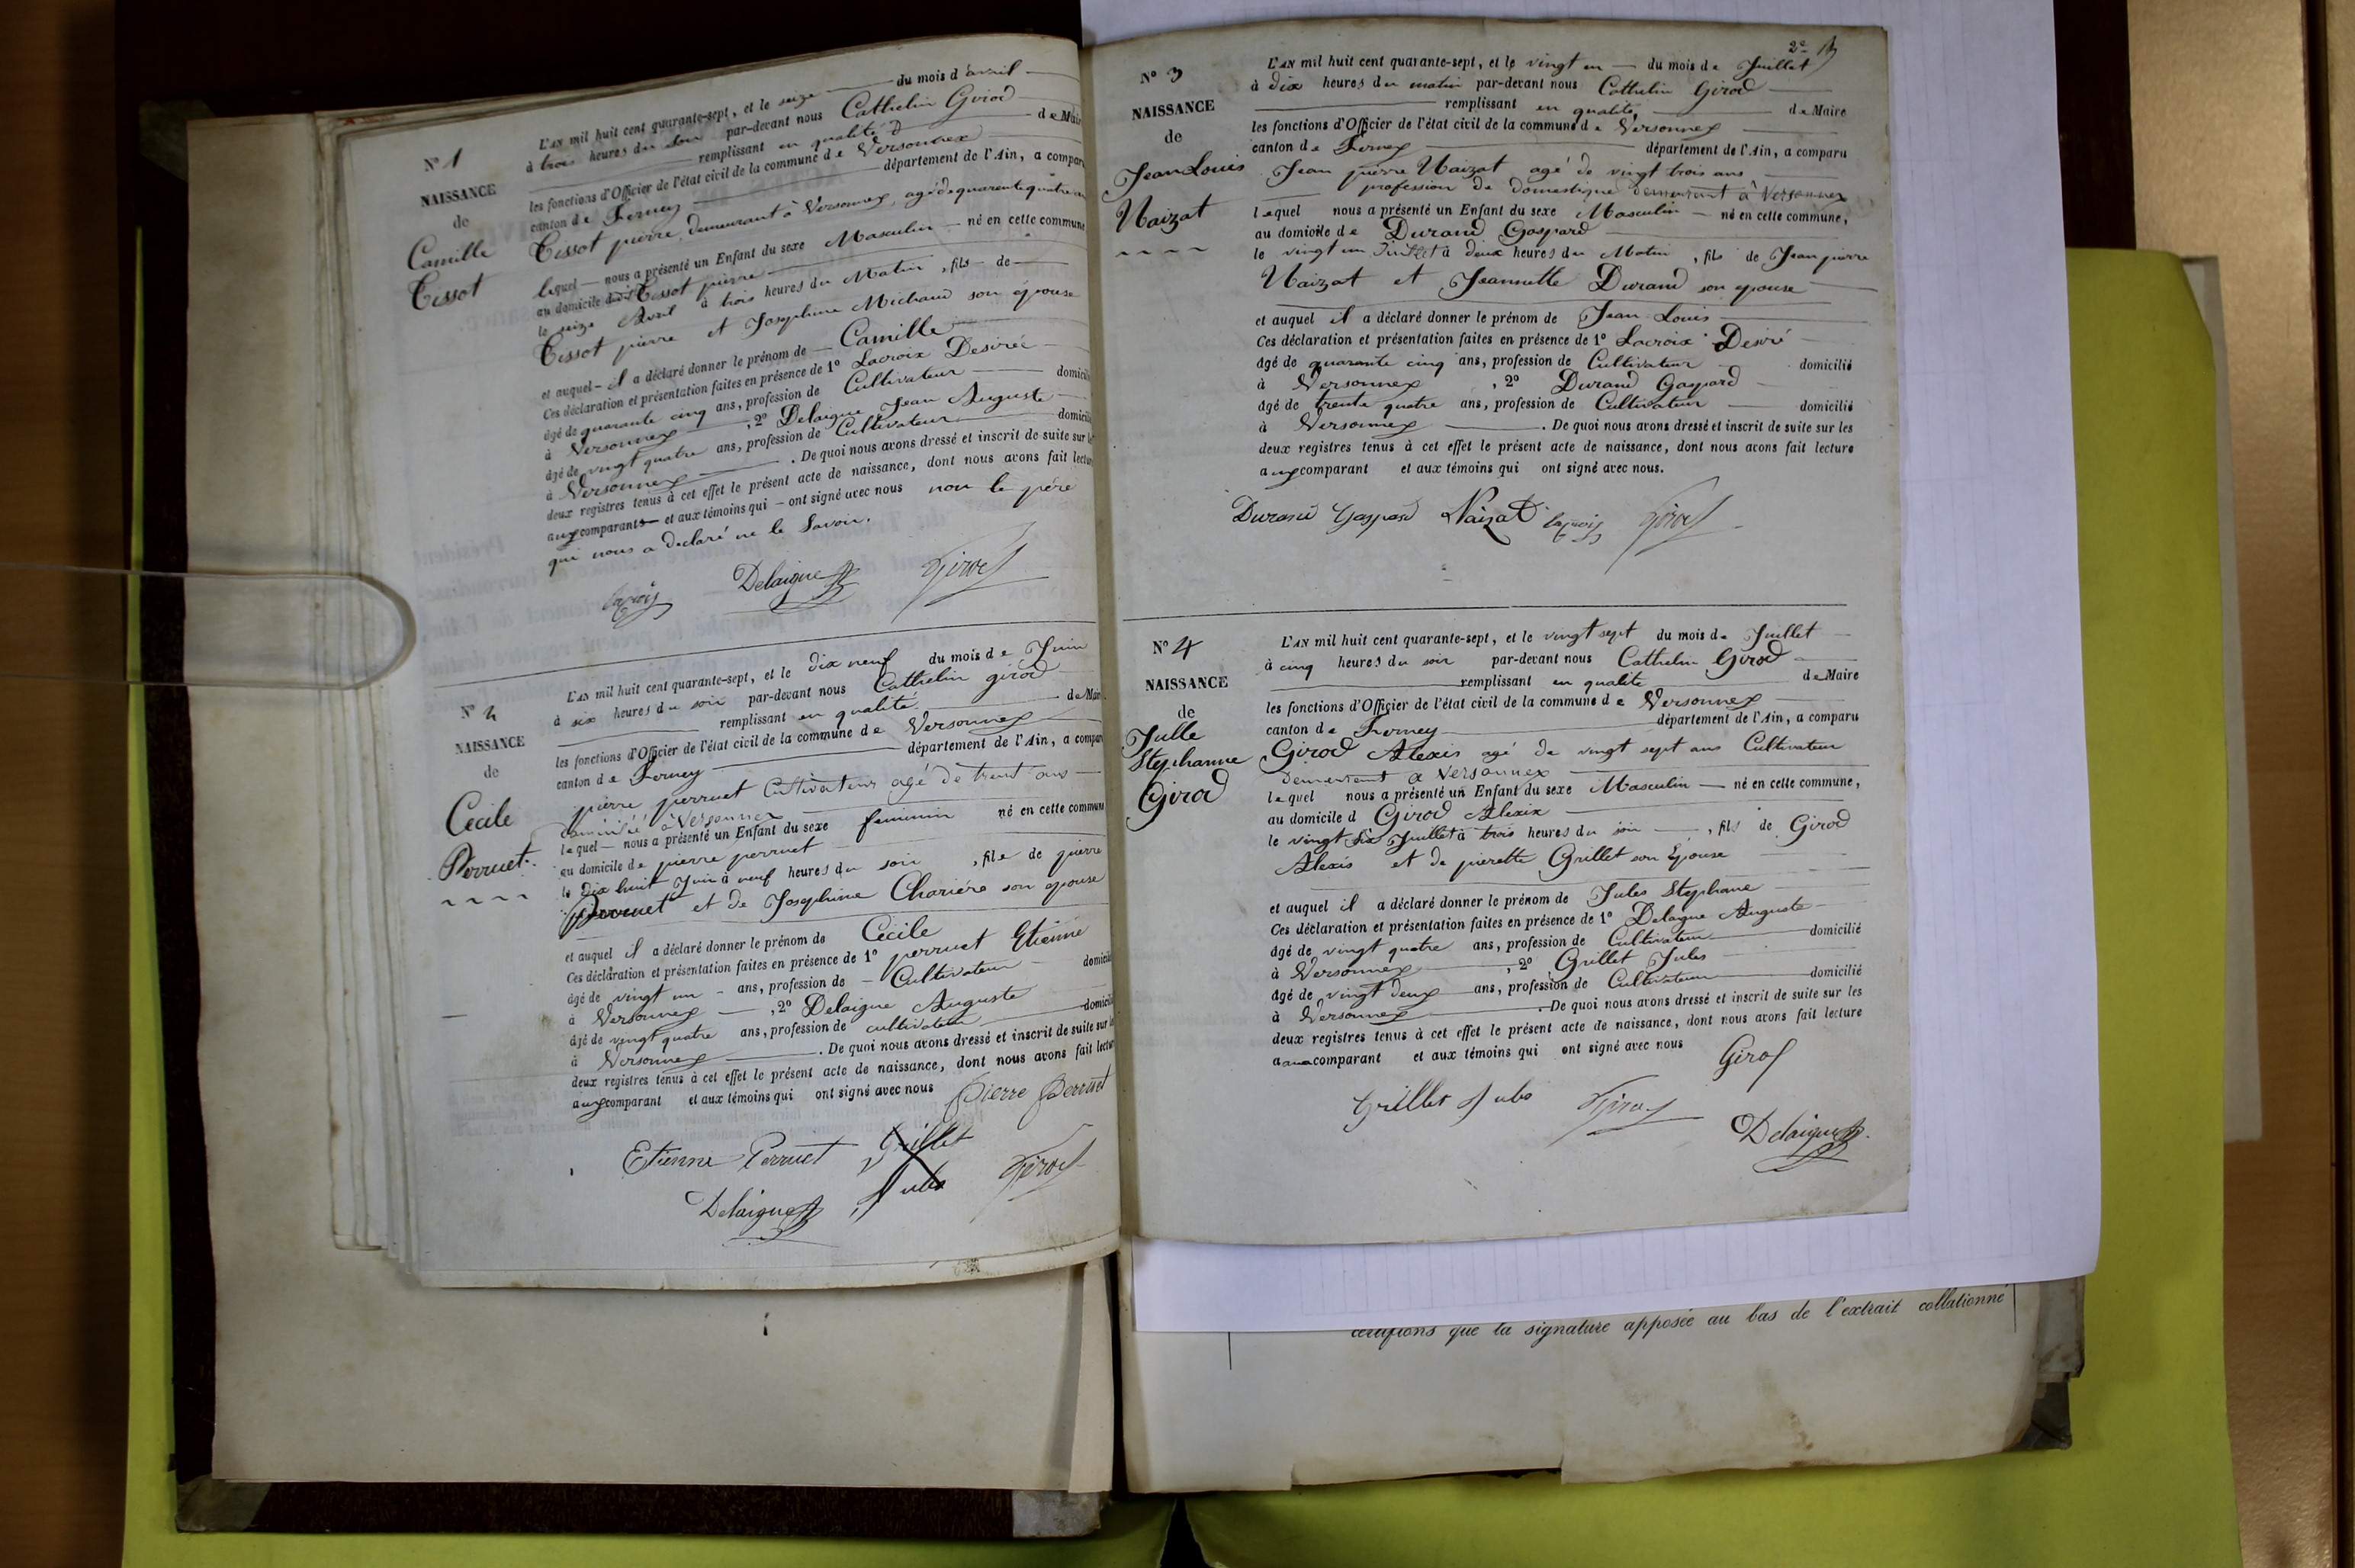 N° 1
NAISSANCE
de
Camille
Tissot
L'AN mil huit cent quarante-sept, et le seize du mois d'avril
à trois heures du soir par-devant nous Cathelin Girod
remplissant en qualité d de Mair
les fonctions d'Officier de l'état civil de la commune de Versonnex
canton de Ferney département de l'Ain, a compar
Tissot pierre, demeurant à Versonnex, agé de quarente quatre an
lequel nous a présenté un Enfant du sexe Masculin né en cette commune
au domicile dudit Tissot pierre
le seize Avril à trois heures du Matin, fils de
Tissot pierre et Josephine Michaud son épouse
et auquel il a déclaré donner le prénom de Camille
Ces déclaration et présentation faites en présence de 1° Lacroix Desirée
âgé de quarante cinq ans, profession de Cultivateur domicili
à Versonnex, 2° Delaigue Jean Auguste
âgé de vingt quatre ans, profession de Cultivateur domicili
à Versonnex. De quoi nous avons dressé et inscrit de suite sur le
deux registres tenus à cet effet le présent acte de naissance, dont nous avons fait lectur
aux comparants et aux témoins qui ont signé avec nous non le père
qui nous a declaré ne le Savoir.
Lacroix Delaigue Girod
N° 2
NAISSANCE
de
Cecile
Perruet
L'AN mil huit cent quarante-sept, et le dix neuf du mois de Juin
à six heures du soir par-devant nous Cathelin girod
remplissant en qualité de Mair
les fonctions d'Officier de l'état civil de la commune de Versonnex
canton de Ferney département de l'Ain, a compar
pierre perruet Cultivateur agé de trent ans
domicilié à Versonnex
lequel nous a présenté un Enfant du sexe feminin né en cette commune
au domicile de pierre perruet
le dix huit Juin à neuf heures du soir, file de pierre
Perruet et de Josephine Chariére son epouse
et auquel il a déclaré donner le prénom de Cécile
Ces déclaration et présentation faites en présence de 1° perruet Etienne
âgé de vingt un ans, profession de Cultivateur domicili
à Versonnex, 2° Delaigue Auguste
âgé de vingt quatre ans, profession de cultivateur domicili
à Versonnex. De quoi nous avons dressé et inscrit de suite sur le
deux registres tenus à cet effet le présent acte de naissance, dont nous avons fait lectur
aux comparant et aux témoins qui ont signé avec nous Pierre Perruet
Etienne Perruet Grillet
Delaigue Jules Girod
2e
N° 3
NAISSANCE
de
Jean Louis
Naizat
L'AN mil huit cent quarante-sept, et le vingt un du mois de Juillet
à dix heures du matin par-devant nous Cathelin Girod
remplissant en qualité, de Maire
les fonctions d'Officier de l'état civil de la commune de Versonnex
canton de Ferney département de l'Ain, a comparu
Jean pierre Naizat agé de vingt trois ans
profession de domestique demeurant à Versonnex
lequel nous a présenté un Enfant du sexe Masculin né en cette commune,
au domicile de Durand Gaspard
le vingt un Juillet à deux heures du Matin, fils de Jean pierre
Naizat et Jeannette Durand son epouse
et auquel il a déclaré donner le prénom de Jean Louis
Ces déclaration et présentation faites en présence de 1° Lacroix Desiré
âgé de quarante cinq ans, profession de Cultivateur domicilié
à Versonnex, 2° Durand Gaspard
âgé de trente quatre ans, profession de Cultivateur domicilié
à Versonnex. De quoi nous avons dressé et inscrit de suite sur les
deux registres tenus à cet effet le présent acte de naissance, dont nous avons fait lecture
aux comparant et aux témoins qui ont signé avec nous.
Durand Gaspard Naizat Lacroix Girod
N° 4
NAISSANCE
de
Julle
Stephanne
Girod
L'AN mil huit cent quarante-sept, et le vingt sept du mois de Juillet
à cinq heures du soir par-devant nous Cathelin Girod
remplissant en qualité de Maire
les fonctions d'Officier de l'état civil de la commune de Versonnex
canton de Ferney département de l'Ain, a comparu
Girod Alexis agé de vingt sept ans Cultivateur
demeurant a Versonnex
lequel nous a présenté un Enfant du sexe Masculin né en cette commune,
au domicile d Girod Alexix
le vingt six Juillet à trois heures du soir, fils de Girod
Alexis et de pierette Grillet son Epouse
et auquel il a déclaré donner le prénom de Jules Stephane
Ces déclaration et présentation faites en présence de 1° Delaigue Auguste
âgé de vingt quatre ans, profession de Cultivateur domicilié
à Versonnex, 2° Grillet Jules
âgé de vingt deux ans, profession de Cultivateur domicilié
à Versonnex. De quoi nous avons dressé et inscrit de suite sur les
deux registres tenus à cet effet le présent acte de naissance, dont nous avons fait lecture
au comparant et aux témoins qui ont signé avec nous Girod
Grillet Jules Girod
Delaigue
certifions que la signature apposée au bas de l'extrait collationné